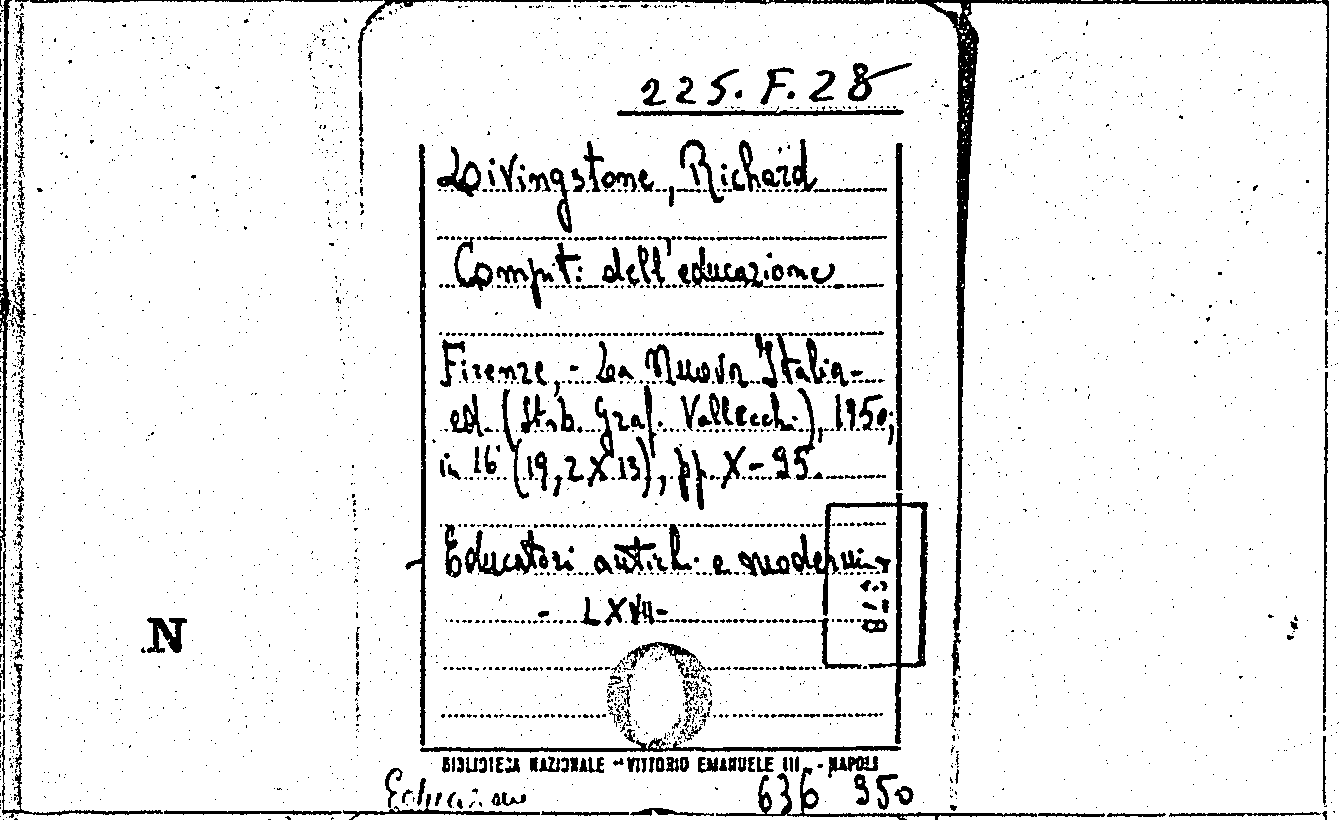 225.F.28
Livingstone, Richard
Compiti dell'educazione
Firenze, - La Nuova Italia-
ed. (Stab. Graf. Vallecchi), 1950;
in 16° (19,2 X 13), pp. X-95.
Educatori antichi e moderni
- LXVII-
378
N
BIBLIOTECA NAZIONALE - VITTORIO EMANUELE III - NAPOLI
Educazione
636 950